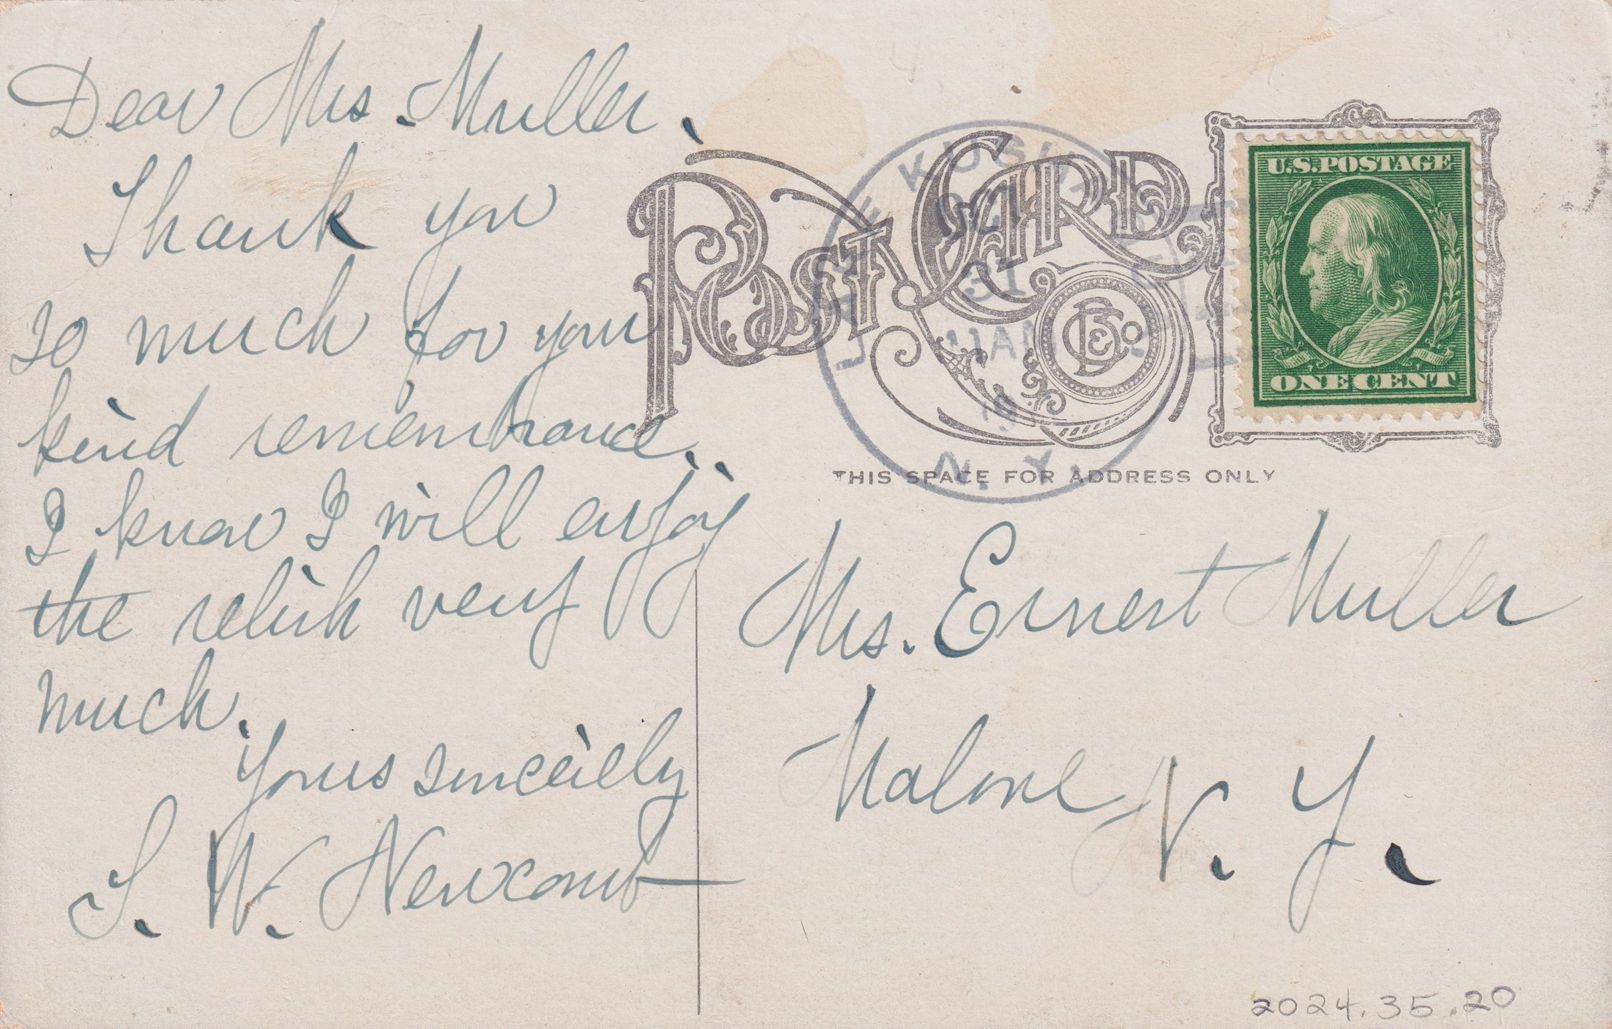 Dear Mrs. Muller,
Thank you
so much for your
kind remembrance.
I know I will enjoy
the relish very
much.
Yours sincerely
S. W. Newcomb
POST CARD
THIS SPACE FOR ADDRESS ONLY
KUSHA
OCT
31
11AM
19
N. Y.
U.S. POSTAGE
ONE CENT
Mrs. Ernest Muller
Malone N. Y.
2024.35.20